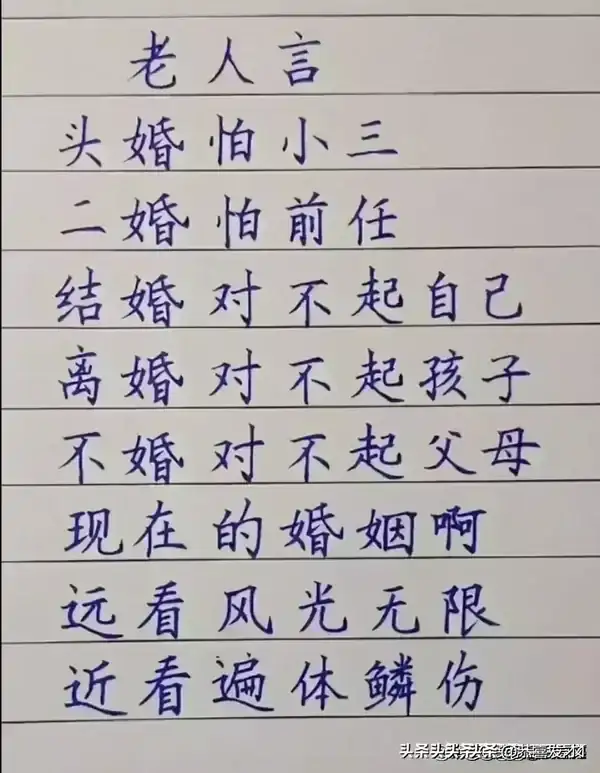 老人言
头婚怕小三
二婚怕前任
结婚对不起自己
离婚对不起孩子
不婚对不起父母
现在的婚姻啊
远看风光无限
近看遍体鳞伤